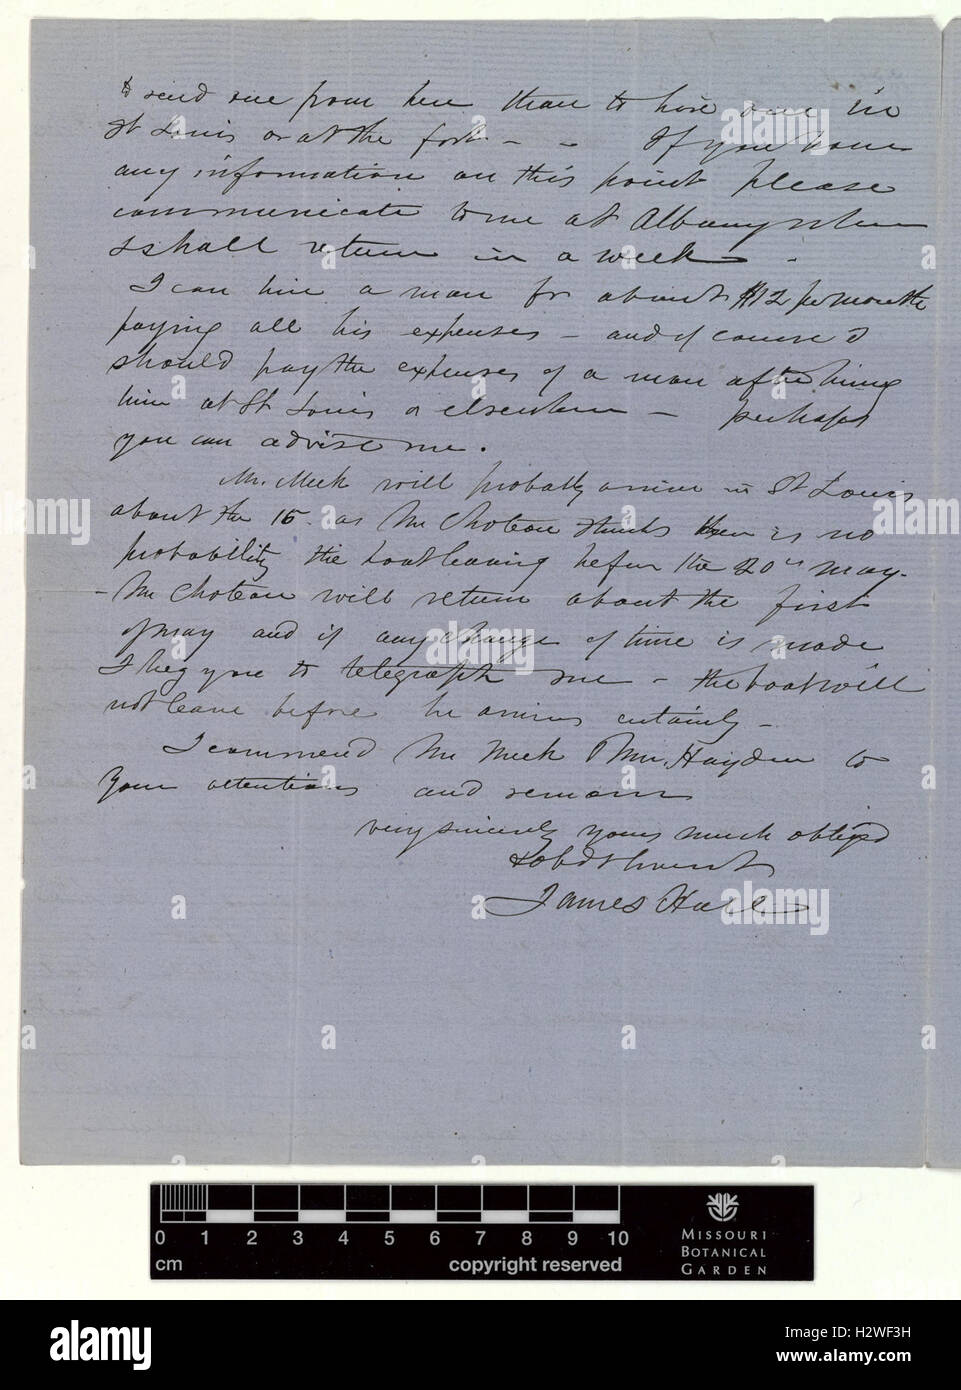 to send one from here than to hire one in
St Louis or at the fort - - If you have
any information on this point please
communicate to me at Albany when
I shall return in a week -
I can hire a man for about $12 per month
paying all his expenses - and of course I
should pay the expenses of a man after hiring
him at St Louis or elsewhere - perhaps
you can advise me.
Mr. Meek will probably arrive in St Louis
about the 15 as Mr Choteau thinks there is no
probability the boat leaving before the 20th May.
- Mr Choteau will return about the first
of May and if any change of time is made
I beg you to telegraph me - the boat will
not leave before he arrives certainly -
I commend Mr Meek & Mr. Hayden to
Your attentions and remain
very sincerely yours much obliged
& obdt servant
James Hall
0 1 2 3 4 5 6 7 8 9 10
cm copyright reserved
MISSOURI
BOTANICAL
GARDEN
a alamy stock photo
H2WF3H
www.alamy.com